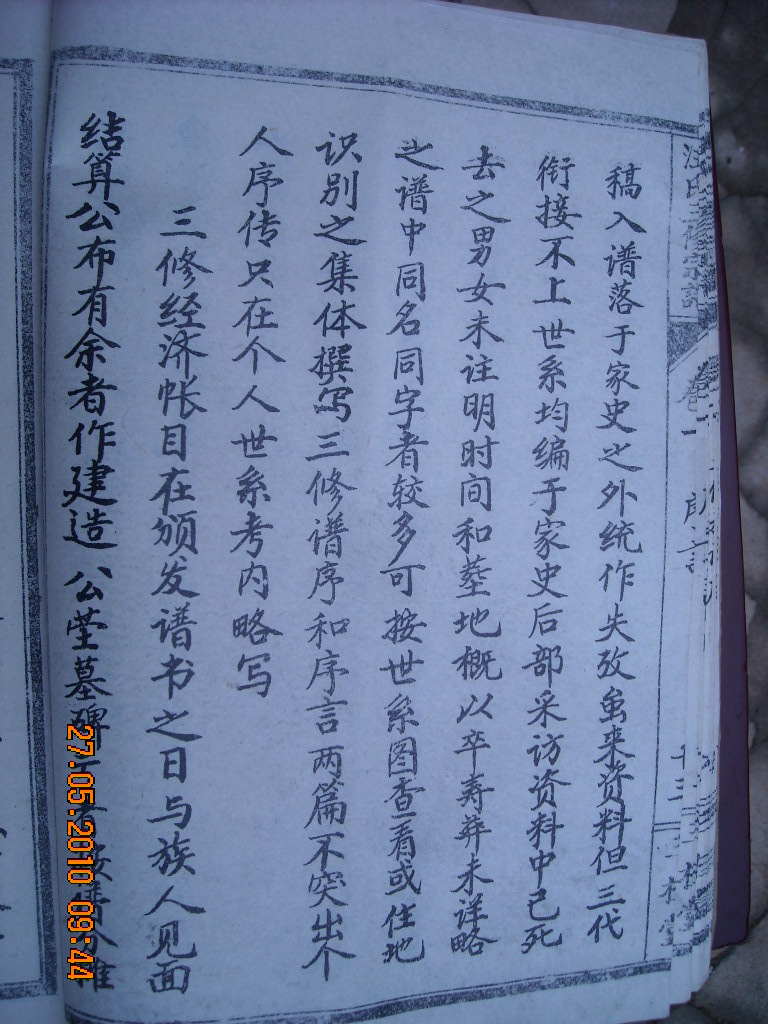 稿入谱落于家史之外统作失攷虽来资料但三代
衔接不上世系均编于家史后部采访资料中已死
去之男女未注明时间和茔地概以卒寿葬未详略
之谱中同名同字者较多可按世系图查看或住地
识别之集体撰写三修谱序和序言两篇不突出个
人序传只在个人世系考内略写
三修经济帐目在颁发谱书之日与族人见面
结算公布有余者作建造公茔墓碑
者按情分摊
汪氏三修宗谱
卷一
序言
十三
27.05.2010 09:44